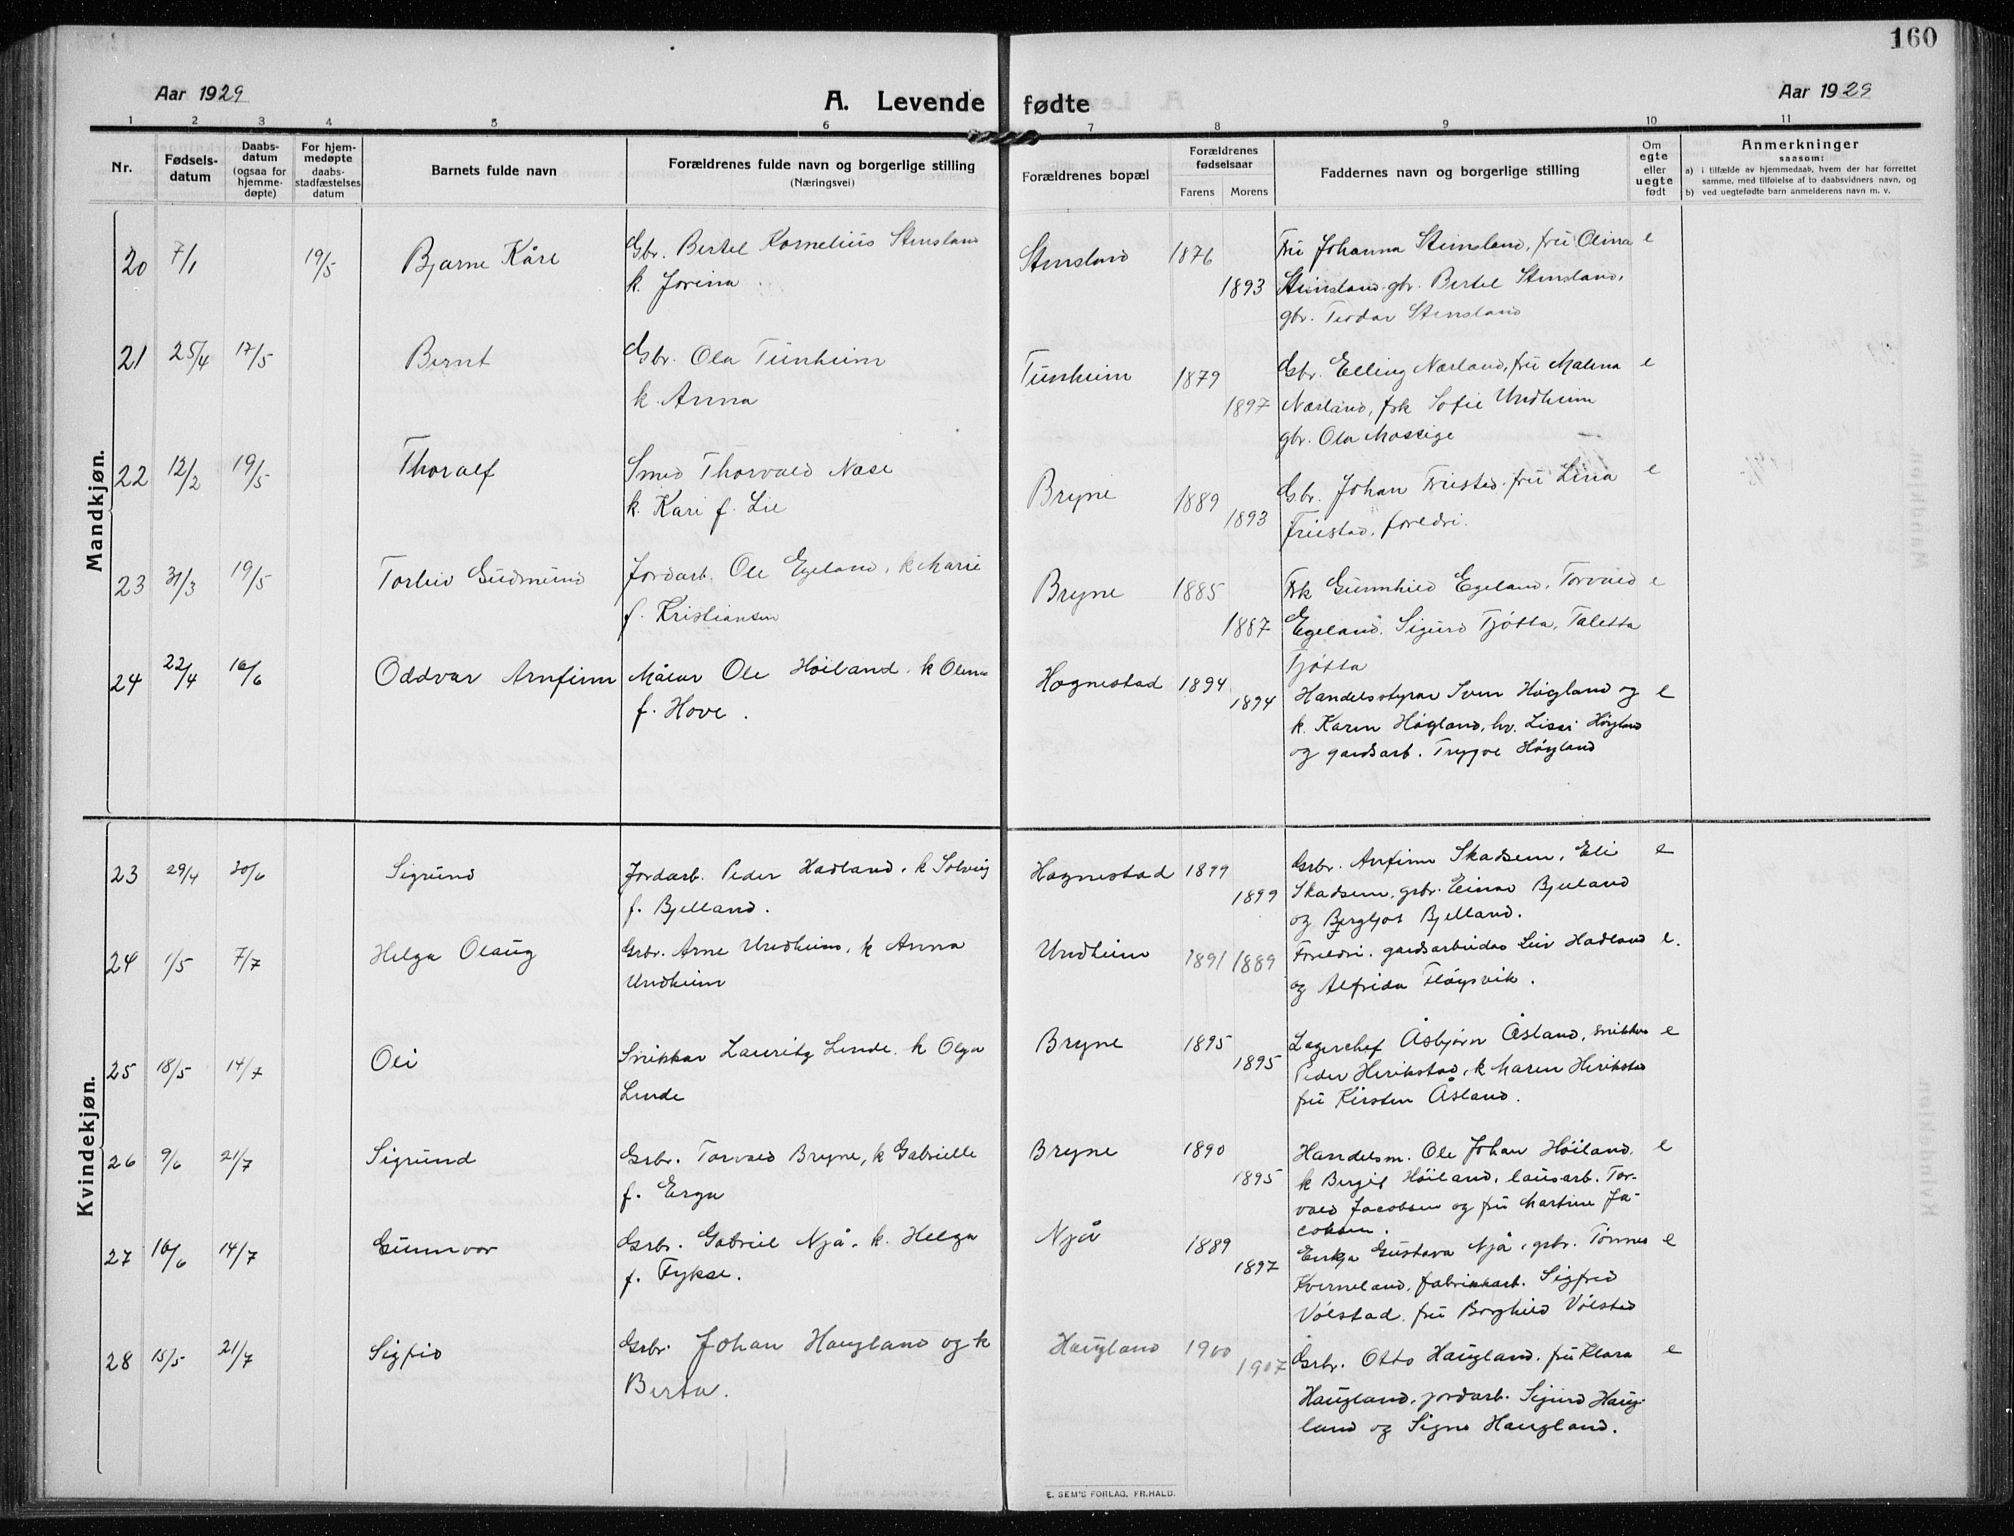 160
Aar 1929
A. Levende fødte
Aar 1929
1 2 3 4 5 6 7 8 9 10 11
Nr.
Fødsels-
datum
Daabs-
datum
(ogsaa for
hjemme-
døpte)
For hjem-
medøpte
daabs-
stadfæstelses
datum
Barnets fulde navn
Forældrenes fulde navn og borgerlige stilling
(Næringsvei)
Forældrenes bopæl
Forældrenes
fødselsaar
Farens Morens
Faddernes navn og borgerlige stilling
Om
egte
eller
uegte
født
Anmerkninger
saasom:
a) i tilfælde av hjemmedaab, hvem der har forrettet
samme, med tilføielse af to daabsvidners navn, og
b) ved uegtefødte barn anmelderens navn m. v.
Mandkjøn.
20 7/1 19/5 Bjarne Kåre Gbr. Bertel Kornelius Stensland
k. Jorina
Stensland 1876 1893 Fru Johanna Stensland, fru Olina e
Stensland gbr. Bertel Stensland,
gbr. Teodor Stensland
21 25/4 17/5 Bernt Gbr. Ola Tunheim
k. Anna
Tunheim 1879 1897 Gbr. Elling Nærland, fru Malena e
Nærland, frk Sofie Undheim
gbr. Ola Mossige
22 12/2 19/5 Thoralf Smed Thorvald Næse
k. Kari f. Lie
Bryne 1889 1893 Gbr. Johan Friestad. fru Lina e
Friestad, foreldri.
23 31/3 19/5 Torleiv Gudmund Jordarb. Ole Egeland, k Marie
f. Kristiansen
Bryne 1885 1887 Frk Gunnhild Egeland, Torvald e
Egeland. Sigurd Tjøtta, Taletta
Tjøtta
24 22/4 16/6 Oddvar Arnfinn Målar Ole Höiland. k Olena
f. Hove.
Hognestad 1894 1894 Handelsstyrar Sven Høgland og e
k. Karen Høgland, hv. Lissi Høyland
og gardsarb. Trygve Høyland
Kvindekjøn.
23 29/4 30/6 Sigrund Jordarb. Peder Hadland. k Solveig
f. Bjelland.
Hognestad 1899 1899 Grbr. Arnfinn Skadsem, Eli e
Skadsem, grbr. Einar Bjelland
og Bergljot Bjelland.
24 1/5 7/7 Helga Olaug Grbr. Arne Undheim, k Anna
Undheim
Undheim 1891 1889 Foreldri. gardsarbeidar Leiv Hadland e.
og Alfrida Fløysvik.
25 18/5 14/7 Oli Snikkar Lauritz Linde. k Olga
Linde
Bryne 1895 1895 Lagerchef Åsbjørn Åsland, snikkar e
Peder Herikstad, k Maren Herikstad
fru Kirsten Åsland.
26 9/6 21/7 Sigrund Grbr. Torvald Bryne, k Gabrielle
f. Erga
Bryne 1890 1895 Handelsm. Ole Johan Höiland. e
k Bergit Höiland, lausarb. Tor-
vald Jacobsen og fru Martine Ja-
cobsen.
27 16/6 14/7 Gunnvor Grbr. Gabriel Njå. k. Helga
f. Fykse.
Njå 1889 1897 Enkja Gustava Njå, grbr. Tønnes e
Kverneland, fabrikkarb. Sigfred
Vølstad. fru Borghild Vølstad
28 15/5 21/7 Sigfrid Grbr. Johan Haugland og k
Berta.
Haugland 1900 1907 Grbr. Otto Haugland. fru Klara e
Haugland, jordarb. Sigurd Haug-
land og Signe Haugland.
E. SEM'S FORLAG, FR.HALD.